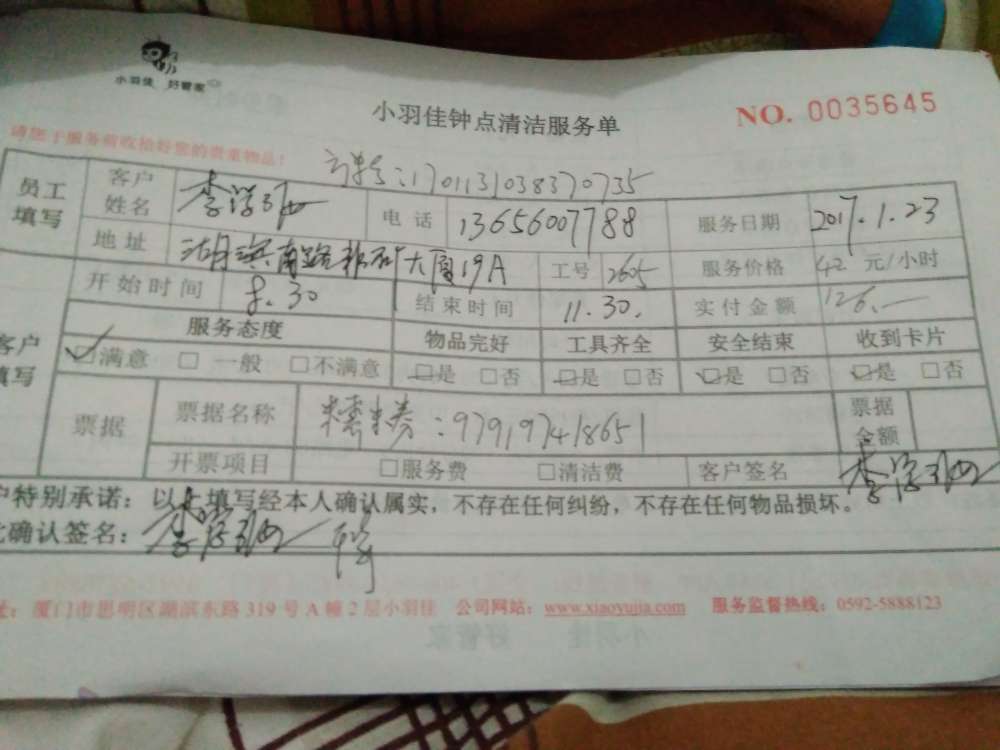 小羽佳 好管家
小羽佳钟点清洁服务单
NO. 0035645
请您于服务前收拾好您的贵重物品！
:1701131038370735
员工填写 客户姓名 李 电话 13656007788 服务日期 2017.1.23
地址 湖滨南路 大厦19A 工号 2605 服务价格 42 元/小时
客户填写 开始时间 8.30 结束时间 11.30. 实付金额 126.
服务态度 物品完好 工具齐全 安全结束 收到卡片
☑满意 □一般 □不满意 ☑是 □否 ☑是 □否 ☑是 □否 ☑是 □否
票据 票据名称 糯米券:979197418651 票据金额
开票项目 □服务费 □清洁费 客户签名 李
户特别承诺：以上填写经本人确认属实，不存在任何纠纷，不存在任何物品损坏。
确认签名： 李
厦门市思明区湖滨东路 319 号 A 幢 2 层小羽佳 公司网站：www.xiaoyujia.com 服务监督热线：0592-5888123